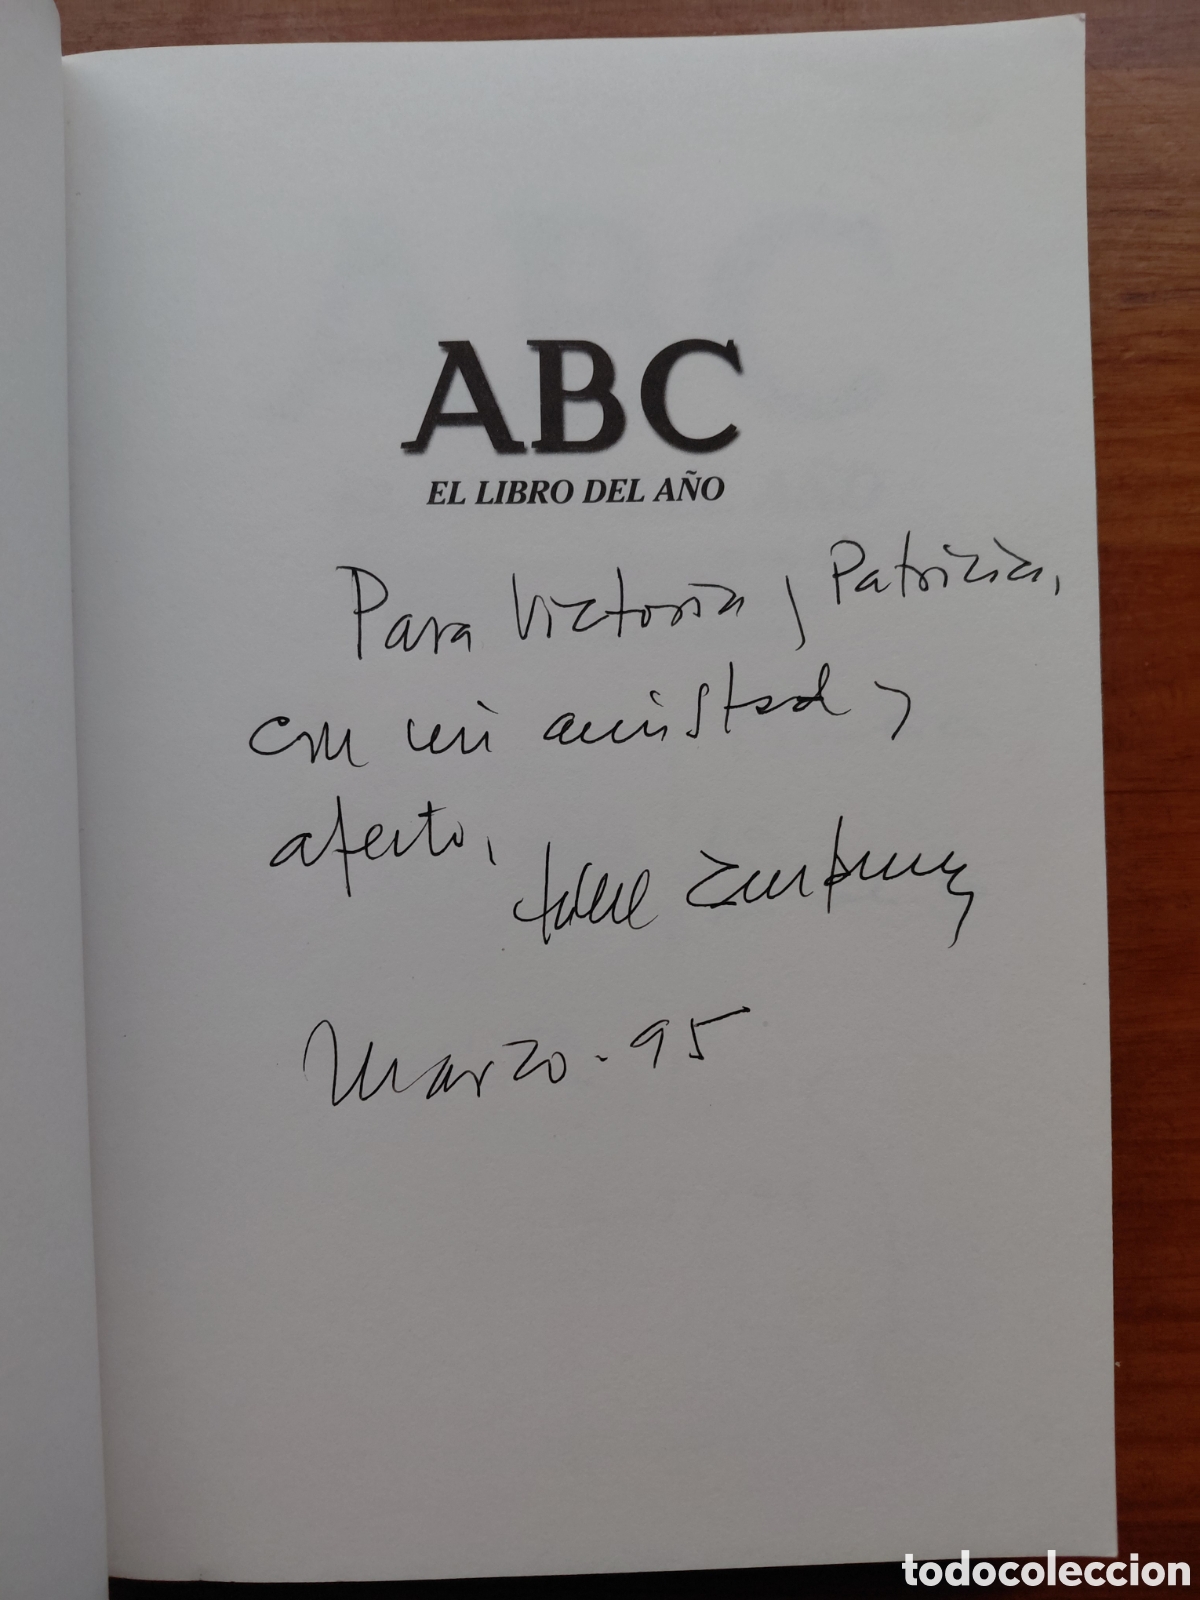 ABC
EL LIBRO DEL AÑO
Para Victoria y Patricia,
con mi amistad y
afecto,
Marzo - 95
todocoleccion